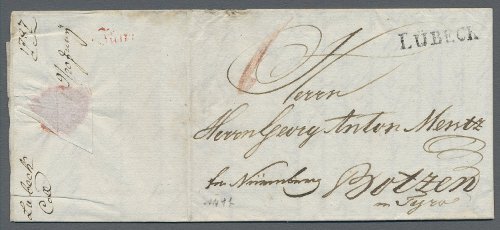 LÜBECK
Herrn
Herrn Georg Anton Mentz
fco Nürnberg Botzen
in Tyrol
1787
Lubeck